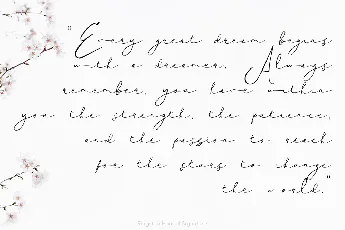 "Every great dream begins
with a dreamer. Always
remember, you have within
you the strength, the patience,
and the passion to reach
for the stars to change
the world."